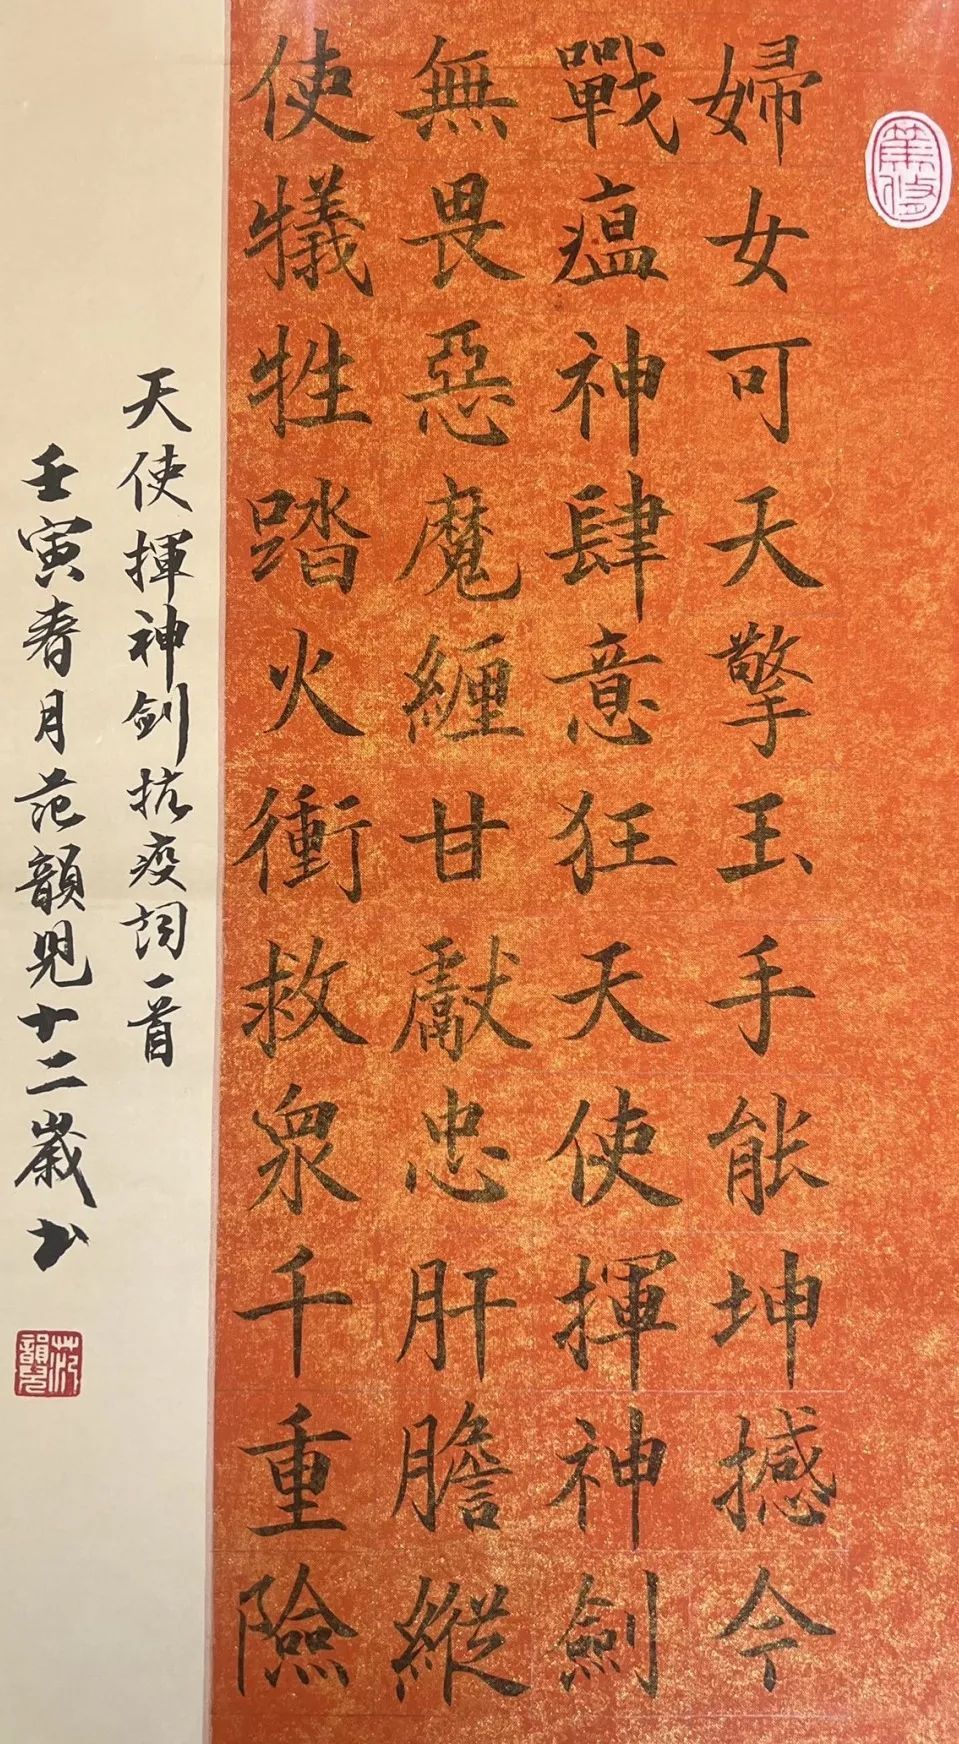 婦女可天擎玉手能坤撼今
戰瘟神肆意狂天使揮神劍
無畏惡魔纏甘獻忠肝膽縱
使犧牲踏火衝救眾千重險
天使揮神劍抗疫詞一首
壬寅春月范韻兒十二歲书
范韻兒